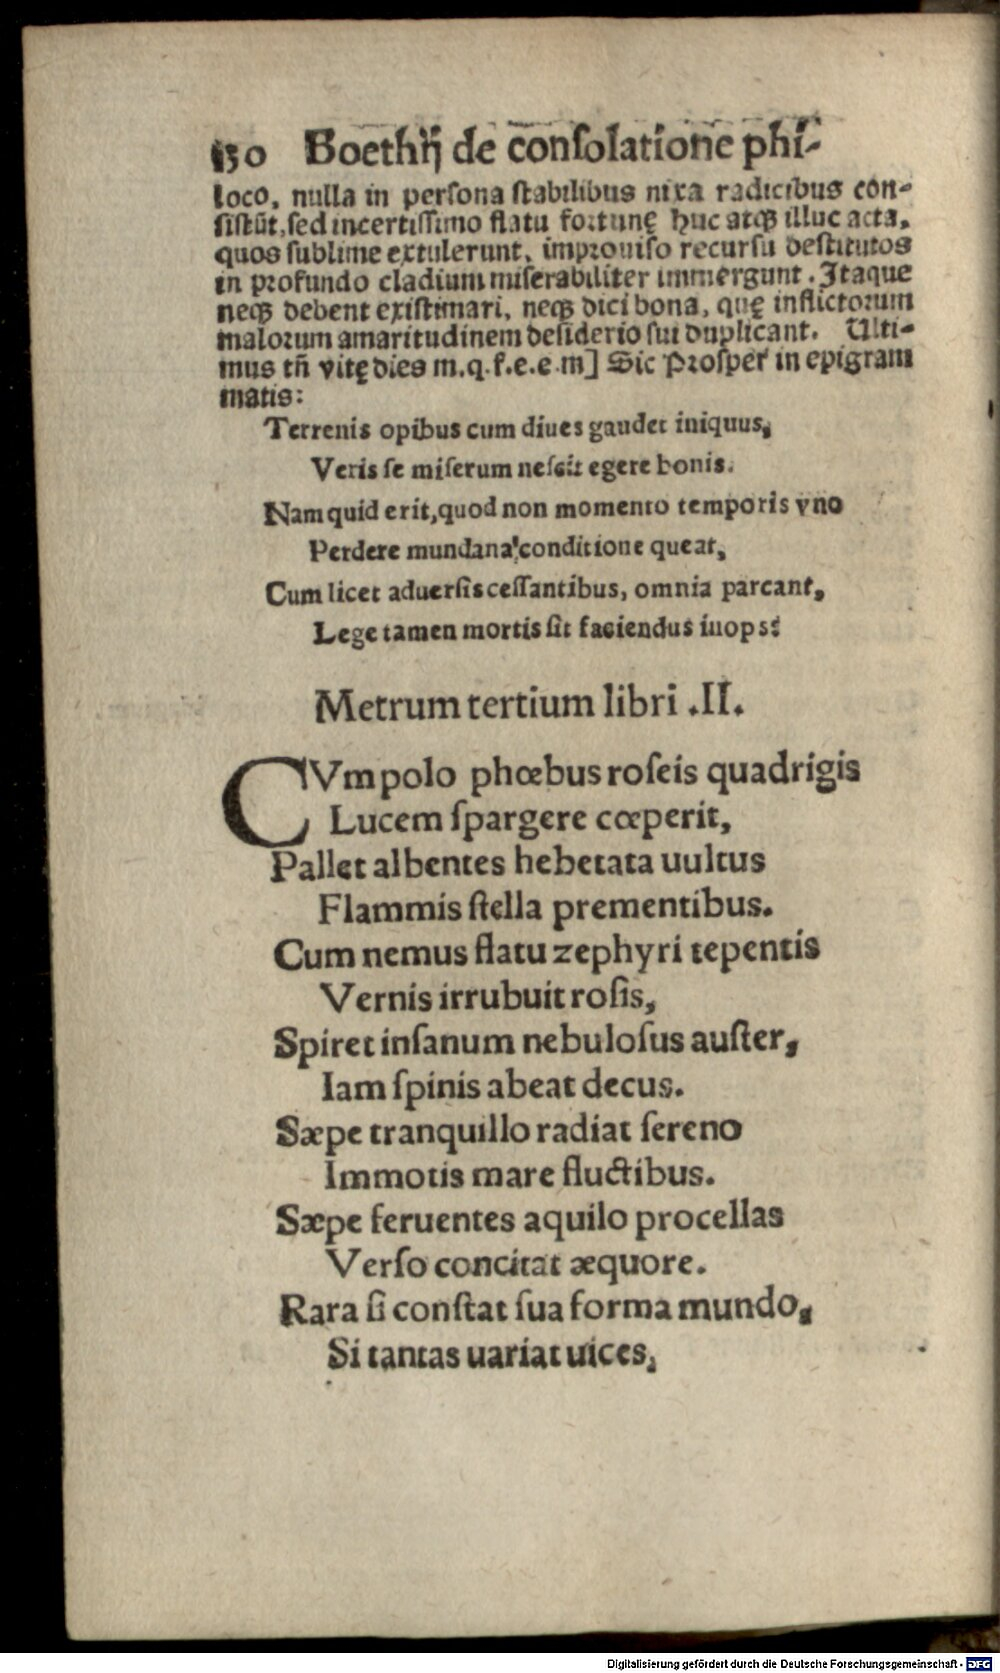 130 Boethij de conſolatione phi-
loco, nulla in perſona ſtabilibus nixa radicibus con-
ſiſtūt, ſed incertiſſimo flatu fortunę huc atqꝫ illuc acta,
quos ſublime extulerunt, improuiſo recurſu deſtitutos
in profundo cladium miſerabiliter immergunt. Itaque
neqꝫ debent exiſtimari, neqꝫ dici bona, quę inflictorum
malorum amaritudinem deſiderio ſui duplicant. Ulti-
mus tñ vitę dies m.q.f.e.e.m] Sic Proſper in epigram
matis:
Terrenis opibus cum diues gaudet iniquus,
Veris ſe miſerum neſcit egere bonis.
Nam quid erit, quod non momento temporis vno
Perdere mundana conditione queat,
Cum licet aduerſis ceſſantibus, omnia parcant,
Lege tamen mortis ſit faciendus inops?
Metrum tertium libri .II.
CVm polo phœbus roſeis quadrigis
Lucem ſpargere cœperit,
Pallet albentes hebetata uultus
Flammis ſtella prementibus.
Cum nemus flatu zephyri tepentis
Vernis irrubuit roſis,
Spiret inſanum nebuloſus auſter,
Iam ſpinis abeat decus.
Sæpe tranquillo radiat ſereno
Immotis mare fluctibus.
Sæpe feruentes aquilo procellas
Verſo concitat æquore.
Rara ſi conſtat ſua forma mundo,
Si tantas uariat uices,
Digitalisierung gefördert durch die Deutsche Forschungsgemeinschaft - DFG